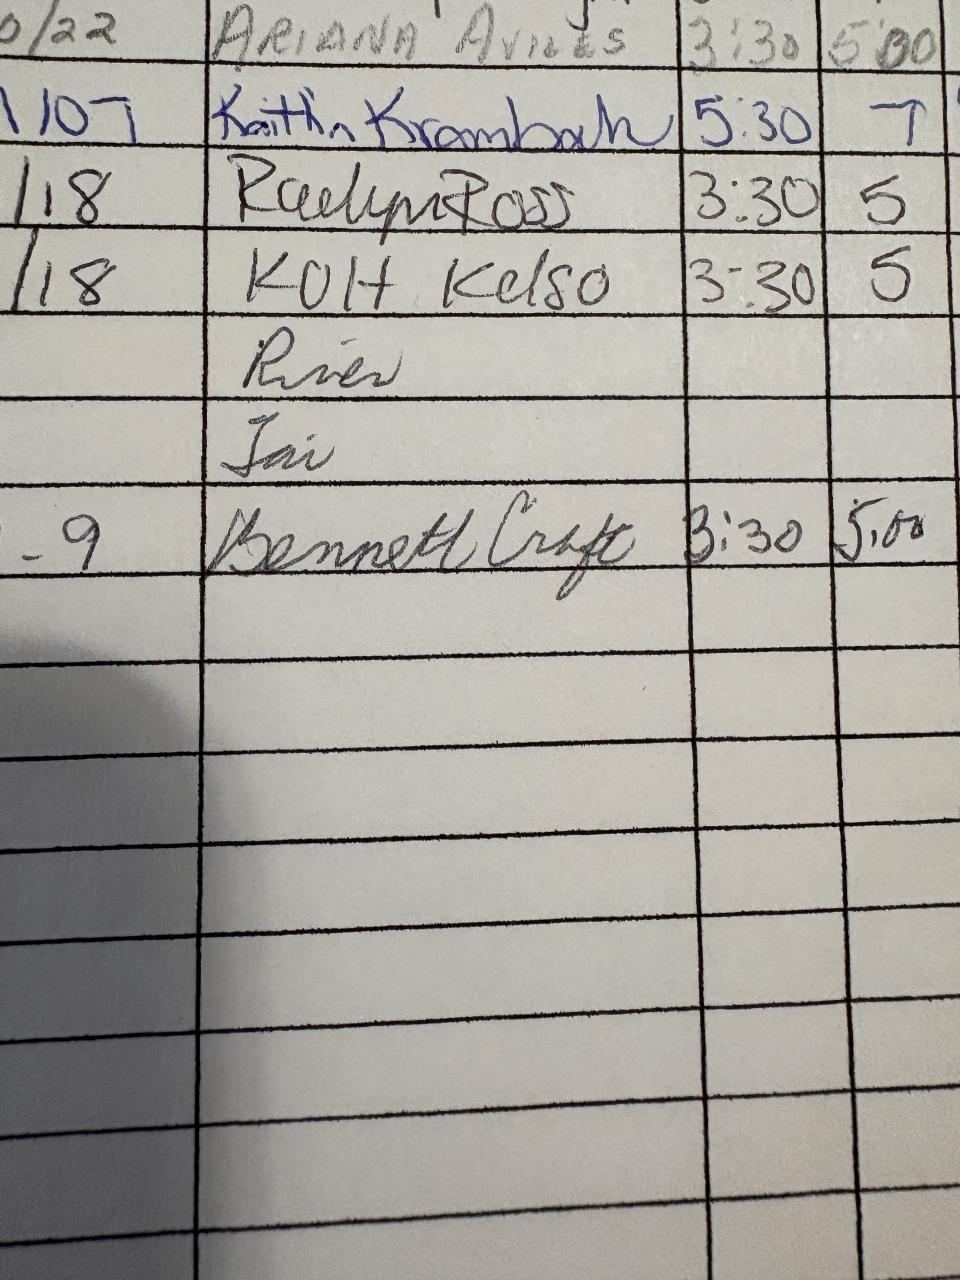 0/22 ARIANA AVILES 3:30 5:00
1/07 Kaitlin Krambach 5:30 7
/18 Raelynn Ross 3:30 5
/18 KOH Kelso 3:30 5
River
Jai
- 9 Bennett Craft 3:30 5:00